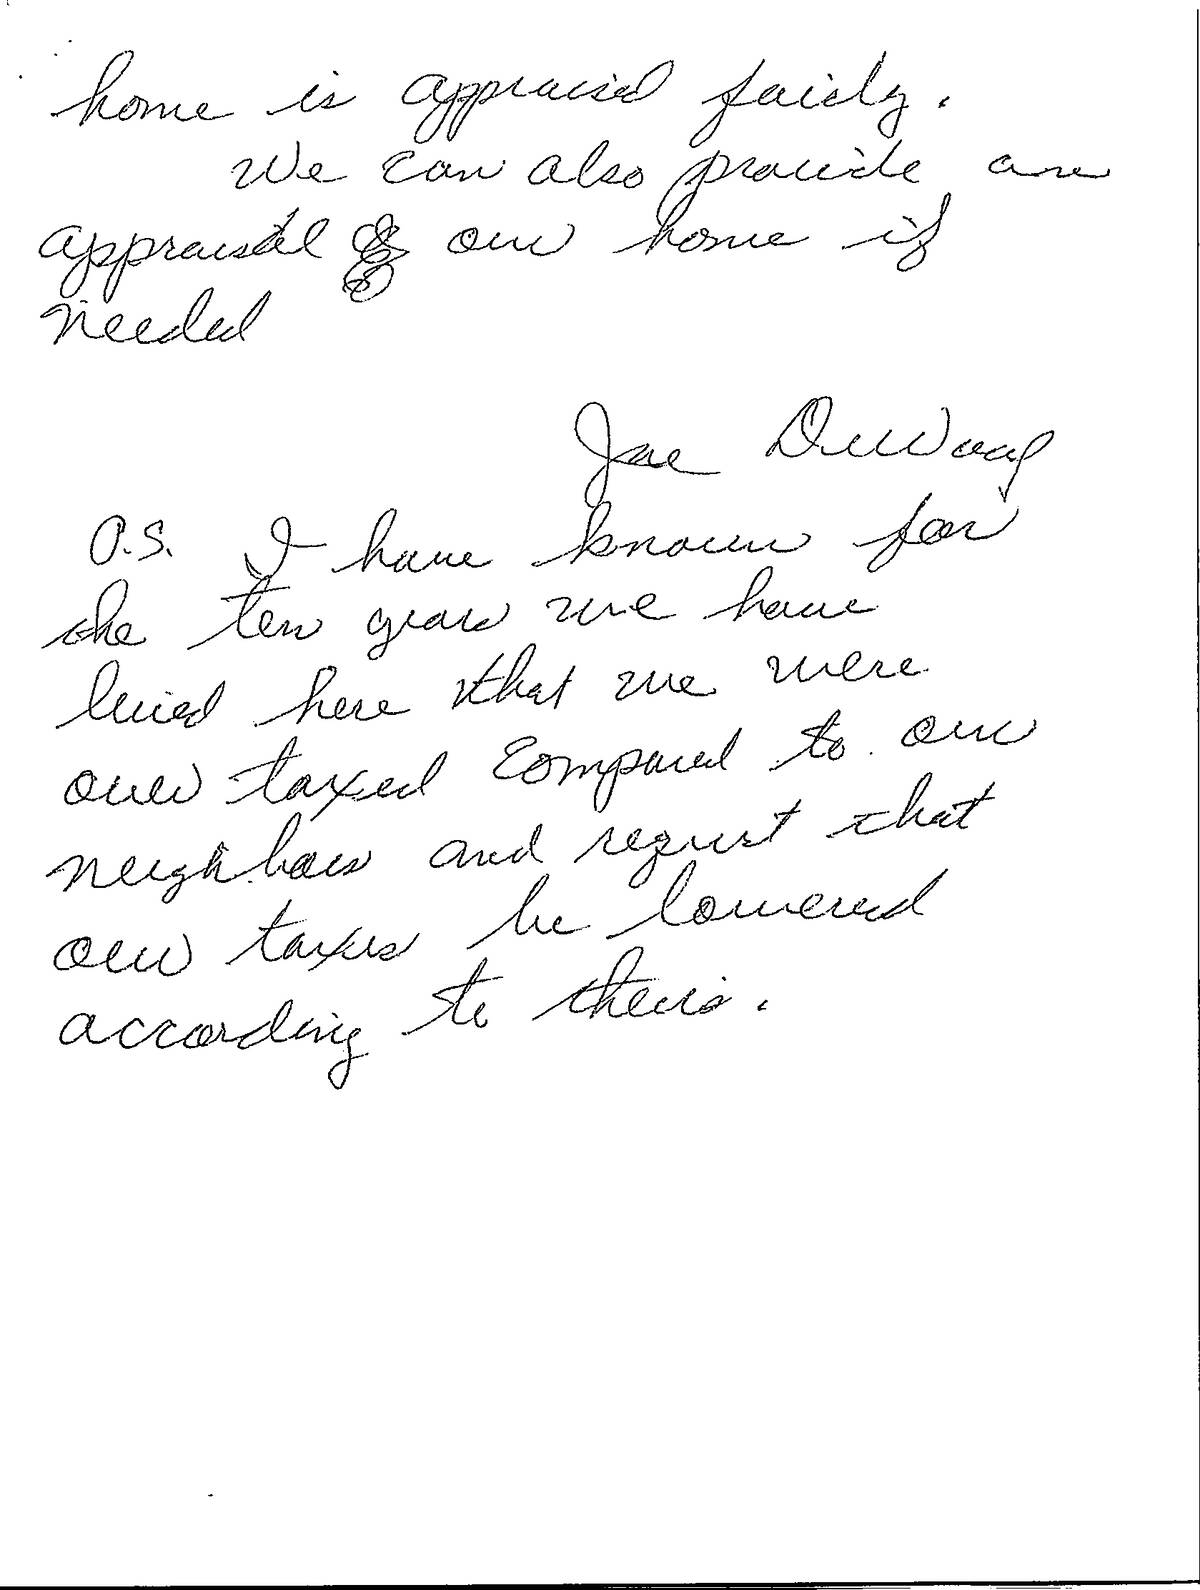 home is appraised fairly.
We can also provide an
appraisal of our home if
needed
Joe
P.S. I have known for
the ten years we have
lived here that we were
over taxed compared to our
neighbors and request that
our taxes be lowered
according to theirs.